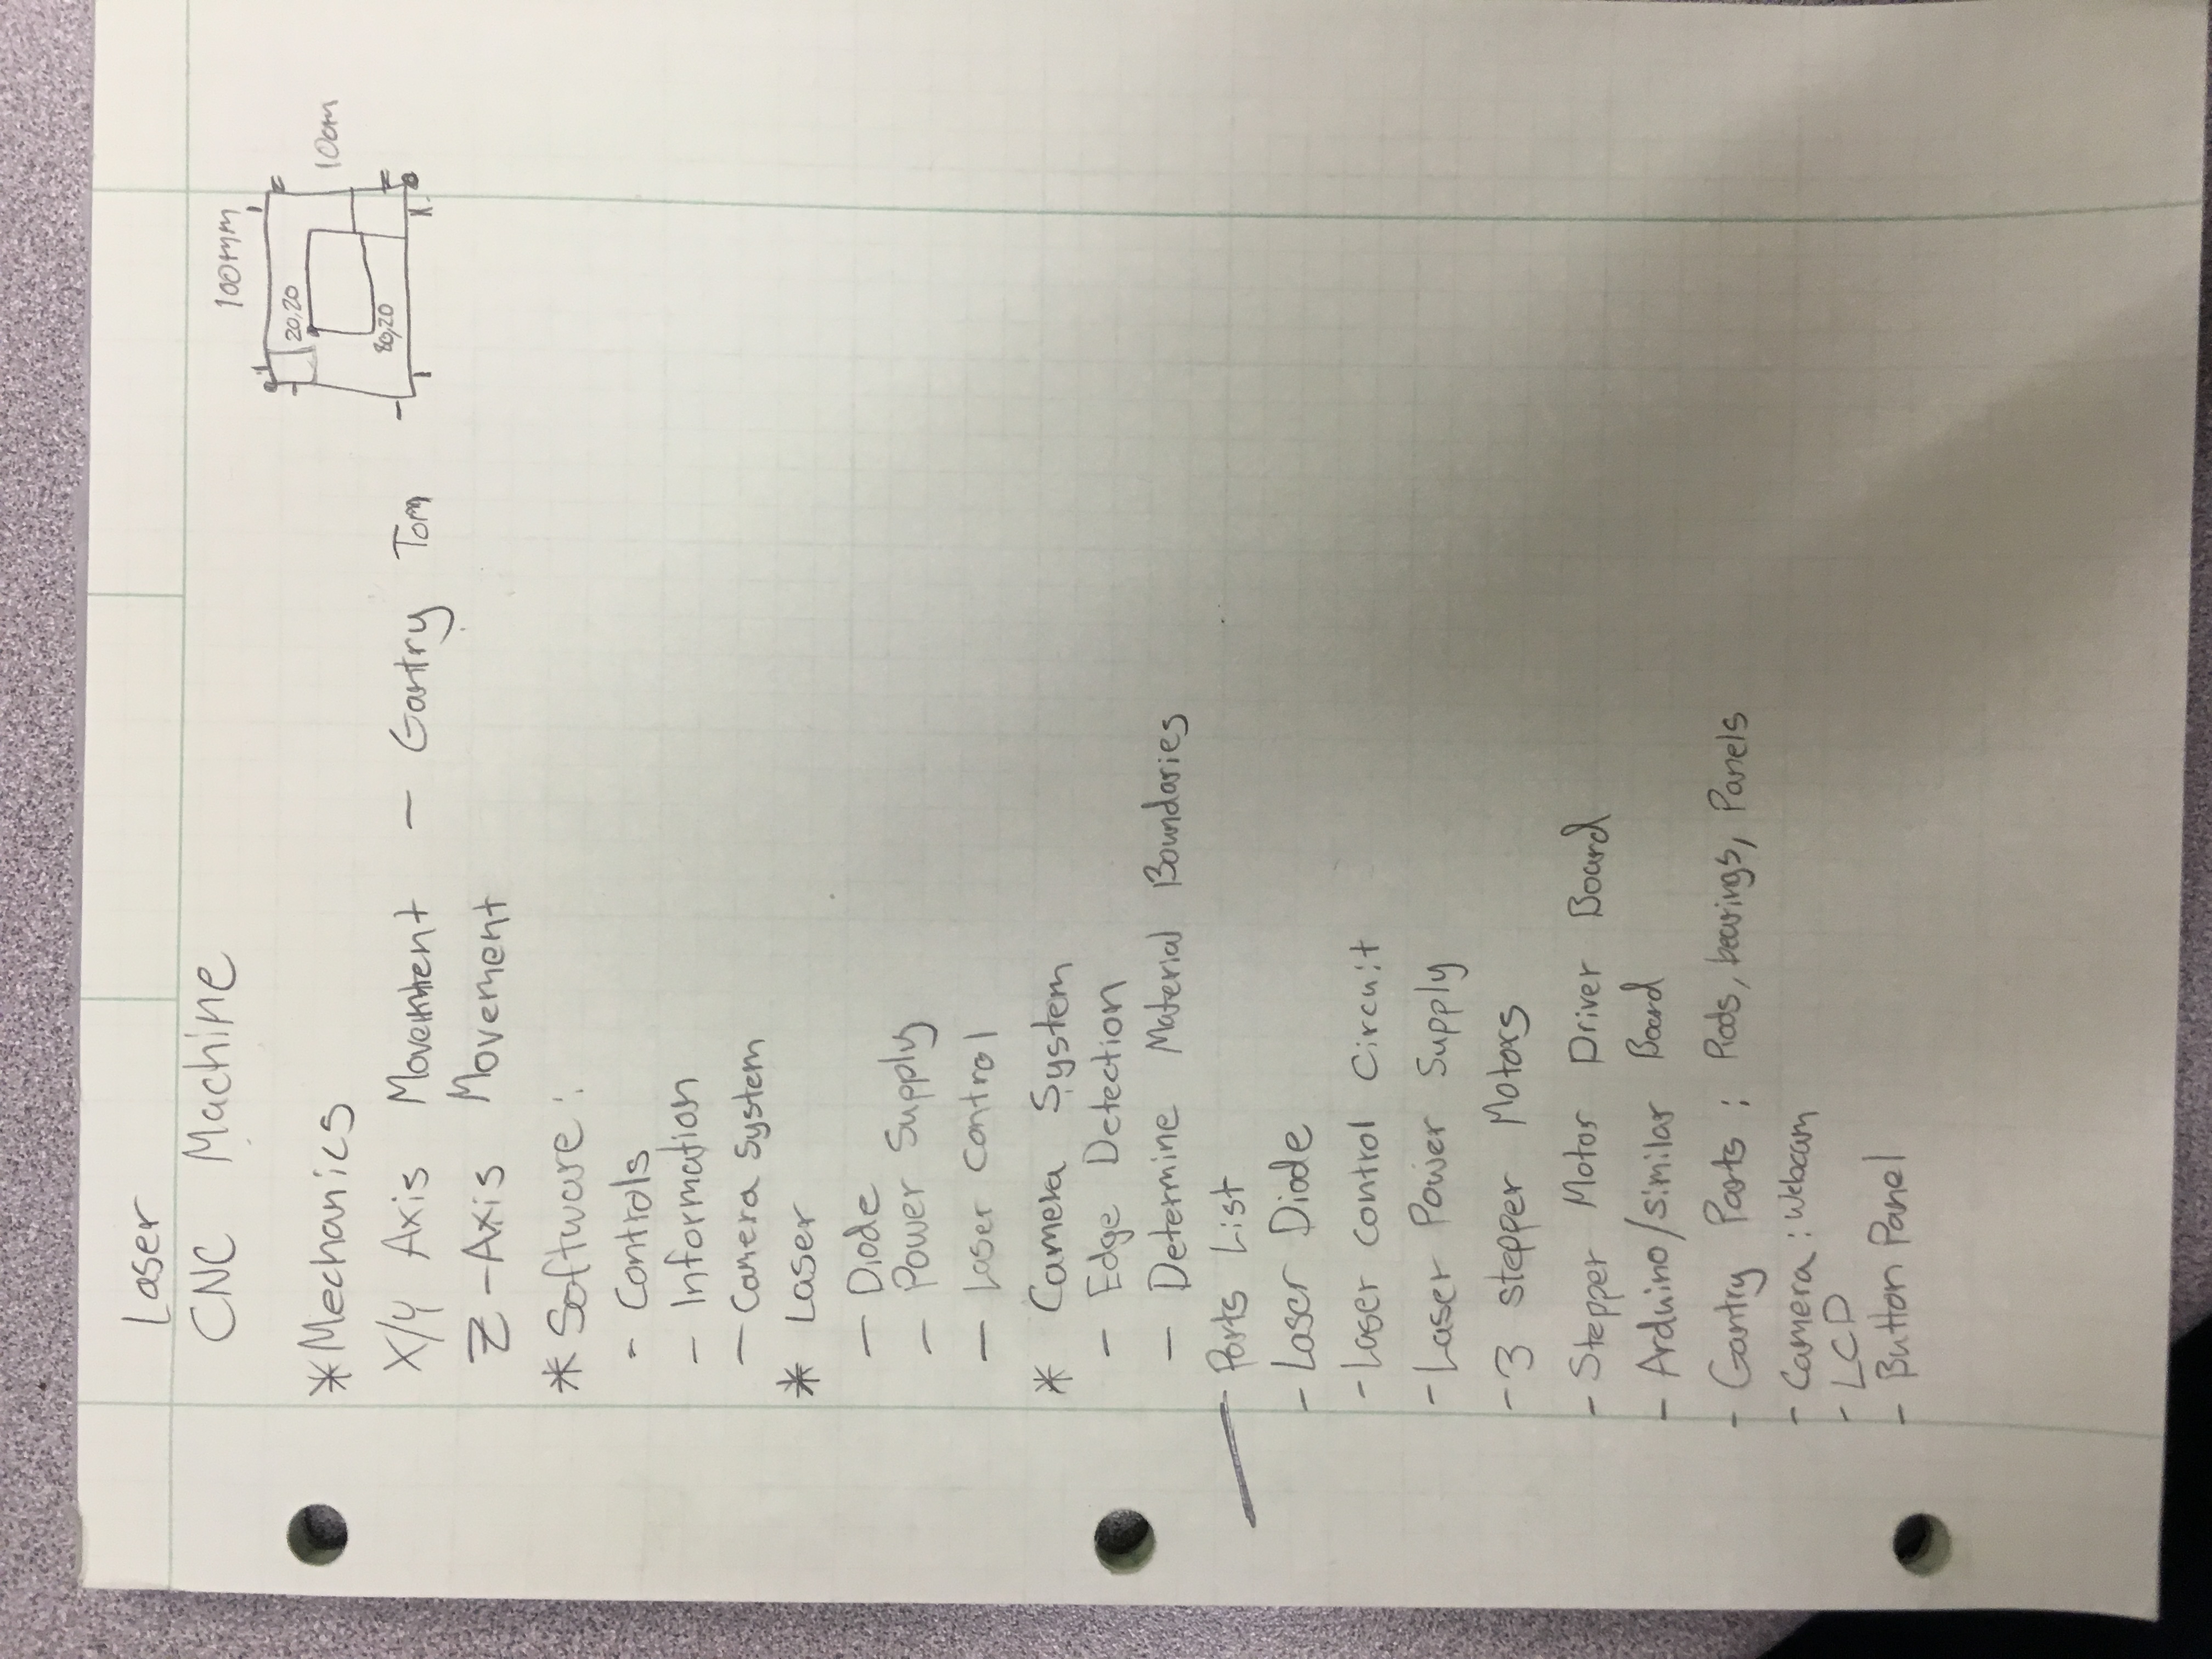 Laser
CNC Machine
100mm
20,20
100m
80,20
* Mechanics
X/Y Axis Movement - Gantry Tom
Z-Axis Movement
* Software:
- Controls
- Information
- Camera System
* Laser
- Diode
- Power Supply
- Laser Control
* Camera System
- Edge Detection
- Determine Material Boundaries
Parts List
- Laser Diode
- Laser control Circuit
- Laser Power Supply
- 3 stepper Motors
- Stepper Motor Driver Board
- Arduino/similar Board
- Gantry Parts: Rods, bearings, Panels
- Camera: Webcam
- LCD
- Button Panel